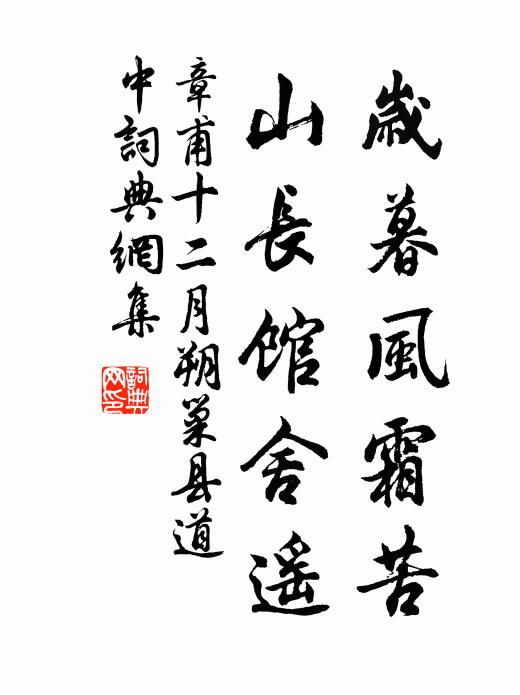 歲暮風霜苦
山長館舍遥
章甫十二月朔巢县道
中詞典網集
詞典网印